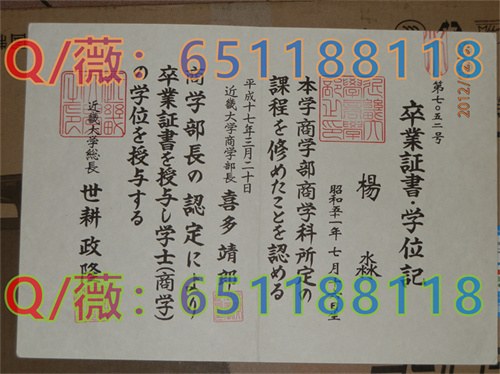 Q/薇: 651188118
第七〇五二号
卒業証書・学位記
楊 淼
昭和五一年七月
本学商学部商学科所定の
課程を修めたことを認める
平成十七年三月二十日
近畿大学商学部長 喜多靖郎
商学部長の認定により
卒業証書を授与し学士(商学)
の学位を授与する
近畿大学総長 世耕政隆
Q/薇: 651188118